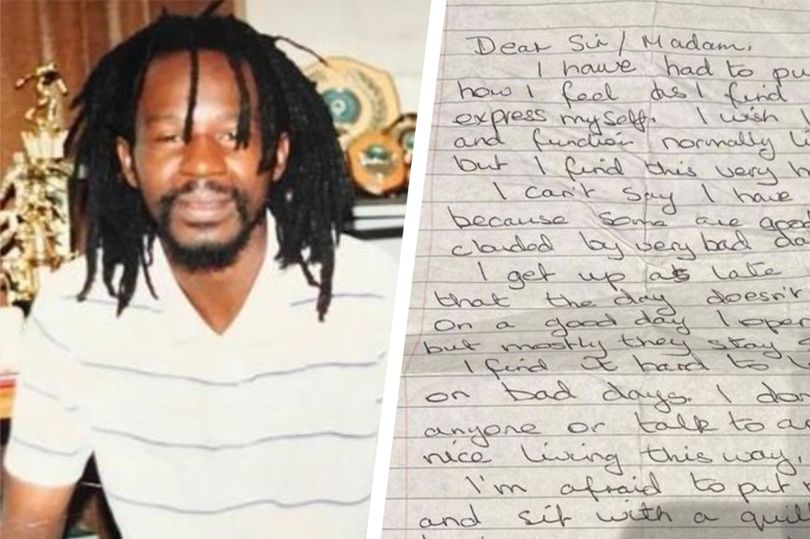 Dear Sir / Madam,
I have had to pu
how I feel as I find
express myself. I wish
and function normally
but I find this very h
I can't say I have
because some are
clouded by very bad da
I get up as late
that the day doesn't
on a good day I oper
but mostly they stay
I find it hard to
on bad days. I don
anyone or talk to a
nice living this way.
I'm afraid to put
and sit with a quil